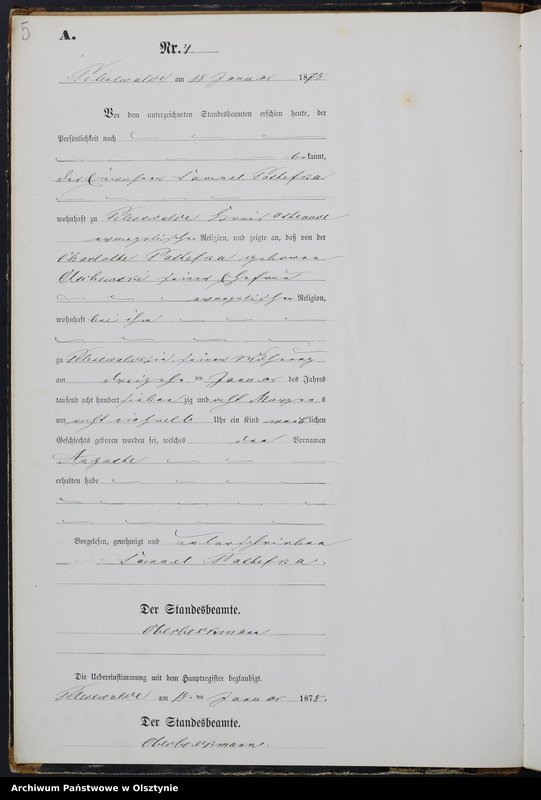 5
A.
Nr. 4
am 18 Januar 1878
Vor dem unterzeichneten Standesbeamten erschien heute, der
Persönlichkeit nach
bekannt,
der Einwohner Samuel
wohnhaft zu Kreis Osterode
evangelischer Religion, und zeigte an, daß von der
Charlotte geborene
seiner Ehefrau
evangelischer Religion,
wohnhaft bei ihm
zu in seiner Wohnung
am dreizehn ten Januar des Jahres
tausend acht hundert sieben zig und acht Morgens
um acht einhalb Uhr ein Kind weiblichen
Geschlechts geboren worden sei, welches den Vornamen
Auguste
erhalten habe
Vorgelesen, genehmigt und unterschrieben
Samuel
Der Standesbeamte.
Die Uebereinstimmung mit dem Hauptregister beglaubigt.
am 18. ten Januar 1878.
Der Standesbeamte.
Archiwum Państwowe w Olsztynie